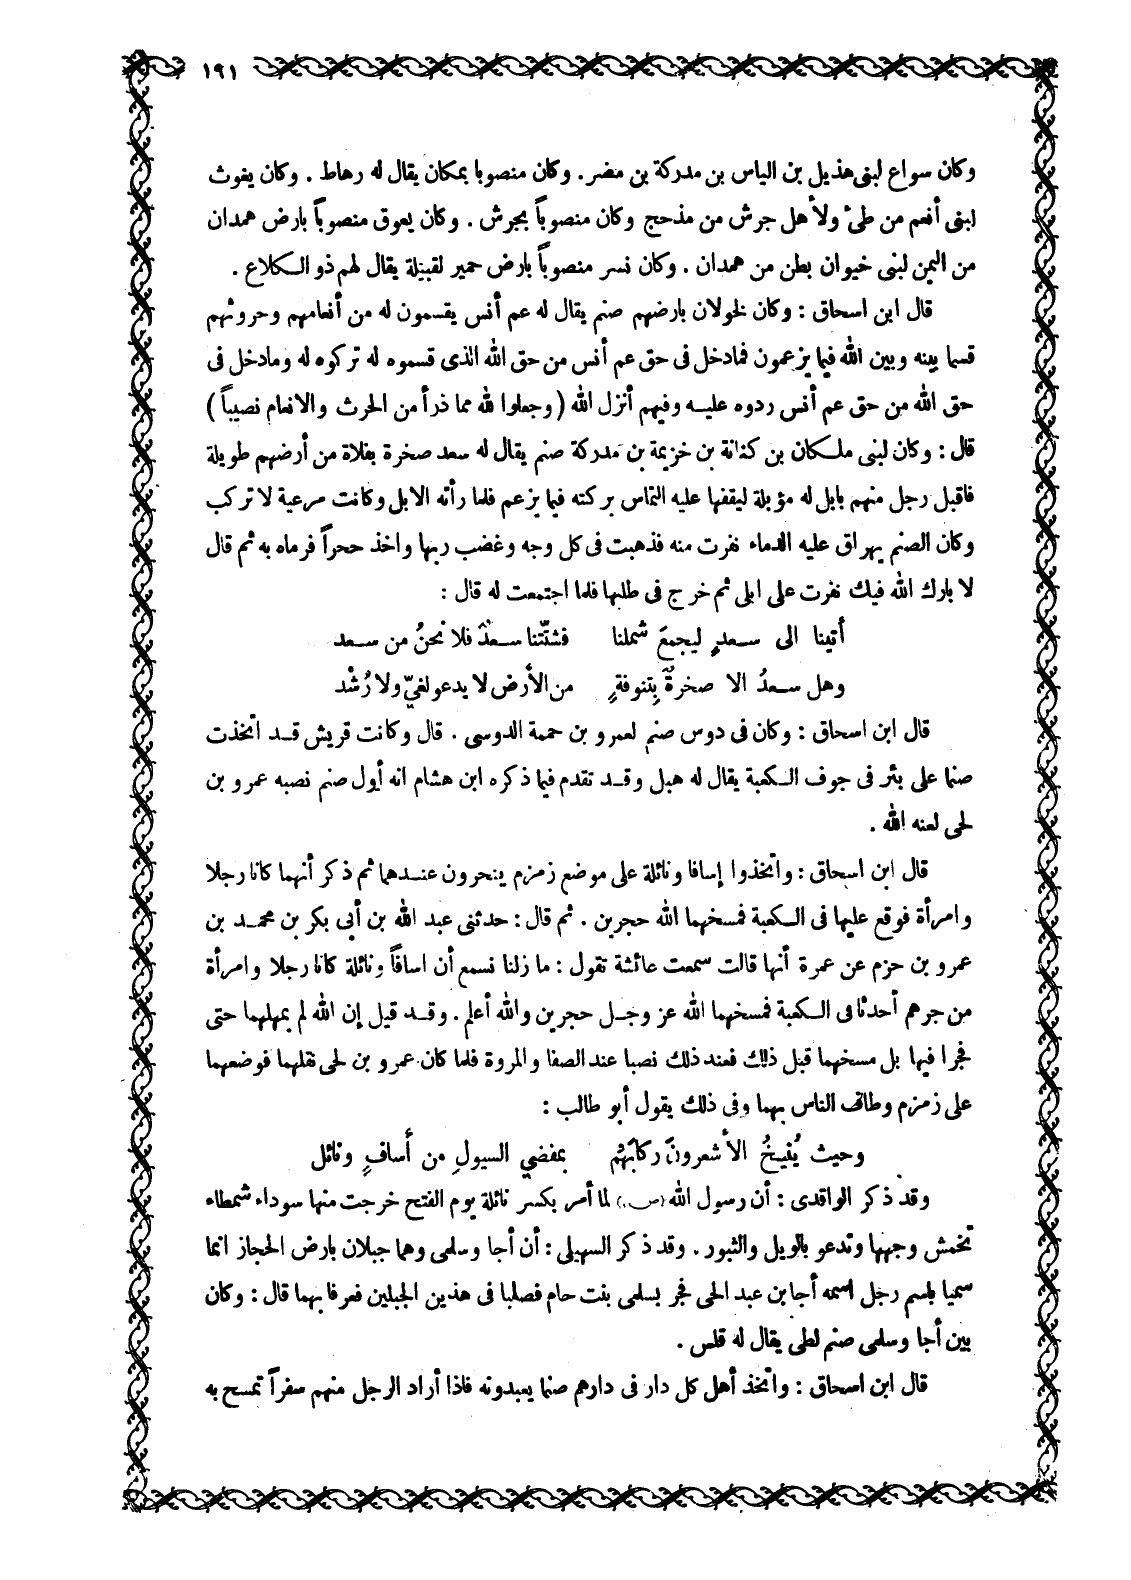 ١٩١
وكان سواع لبنى هذيل بن الياس بن مدركة بن مضر. وكان منصوبا بمكان يقال له رهاط . وكان يغوث
لبنى أنعم من طئ ولأهل جرش من مذحج وكان منصوباً بجرش . وكان يعوق منصوباً بارض همدان
من اليمن لبنى خيوان بطن من همدان . وكان نسر منصوباً بارض حمير لقبيلة يقال لهم ذو الكلاع .
قال ابن اسحاق : وكان لخولان بارضهم صنم يقال له عم أنس يقسمون له من أنعامهم وحروثهم
قسما بينه وبين الله فيما يزعمون فمادخل فى حق عم أنس من حق الله الذى قسموه له تركوه له ومادخل فى
حق الله من حق عم أنس ردوه عليه وفيهم أنزل الله ( وجعلوا لله مما ذرأ من الحرث والانعام نصيباً )
قال : وكان لبنى ملكان بن كنانة بن خزيمة بن مدركة صنم يقال له سعد صخرة بفلاة من أرضهم طويلة
فاقبل رجل منهم بابل له مؤبلة ليقفها عليه التماس بركته فيما يزعم فلما رأته الابل وكانت مرعية لا تركب
وكان الصنم يهراق عليه الدماء نفرت منه فذهبت فى كل وجه وغضب ربها واخذ حجراً فرماه به ثم قال
لا بارك الله فيك نفرت على ابلى ثم خرج فى طلبها فلما اجتمعت له قال :
أتينا الى سعدٍ ليجمعَ شملنا فشتّتنا سعدٌ فلا نحنُ من سعد
وهل سعدُ الا صخرةٌ بِتنوفةٍ من الأرض لا يدعو لغيّ ولا رُشْد
قال ابن اسحاق : وكان فى دوس صنم لعمرو بن حممة الدوسى . قال وكانت قريش قد اتخذت
صنما على بئر فى جوف الكعبة يقال له هبل وقد تقدم فيما ذكره ابن هشام انه أول صنم نصبه عمرو بن
لحى لعنه الله .
قال ابن اسحاق : واتخذوا إسافا ونائلة على موضع زمزم ينحرون عندهما ثم ذكر أنهما كانا رجلا
وامرأة فوقع عليها فى الكعبة فمسخهما الله حجرين . ثم قال : حدثنى عبد الله بن أبى بكر بن محمد بن
عمرو بن حزم عن عمرة أنها قالت سمعت عائشة تقول : ما زلنا نسمع أن اسافاً ونائلة كانا رجلا وامرأة
من جرهم أحدثا فى الكعبة فمسخهما الله عز وجل حجرين والله أعلم . وقد قيل إن الله لم يمهلهما حتى
فجرا فيها بل مسخهما قبل ذلك فعند ذلك نصبا عند الصفا والمروة فلما كان عمرو بن لحى نقلهما فوضعهما
على زمزم وطاف الناس بهما وفى ذلك يقول أبو طالب :
وحيث يُنيخُ الأشعرونَ ركابَهُم بمفضي السيولِ من أسافٍ ونائل
وقد ذكر الواقدى : أن رسول الله (ص.) لما أمر بكسر نائلة يوم الفتح خرجت منها سوداء شمطاء
تخمش وجهها وتدعو بالويل والثبور . وقد ذكر السهيلى : أن أجا وسلمى وهما جبلان بارض الحجاز انما
سميا باسم رجل اسمه أجا بن عبد الحى فجر بسلمى بنت حام فصلبا فى هذين الجبلين فعرفا بهما قال : وكان
بين أجا وسلمى صنم لطى يقال له قلس .
قال ابن اسحاق : واتخذ أهل كل دار فى دارهم صنما يعبدونه فاذا أراد الرجل منهم سفراً تمسح به